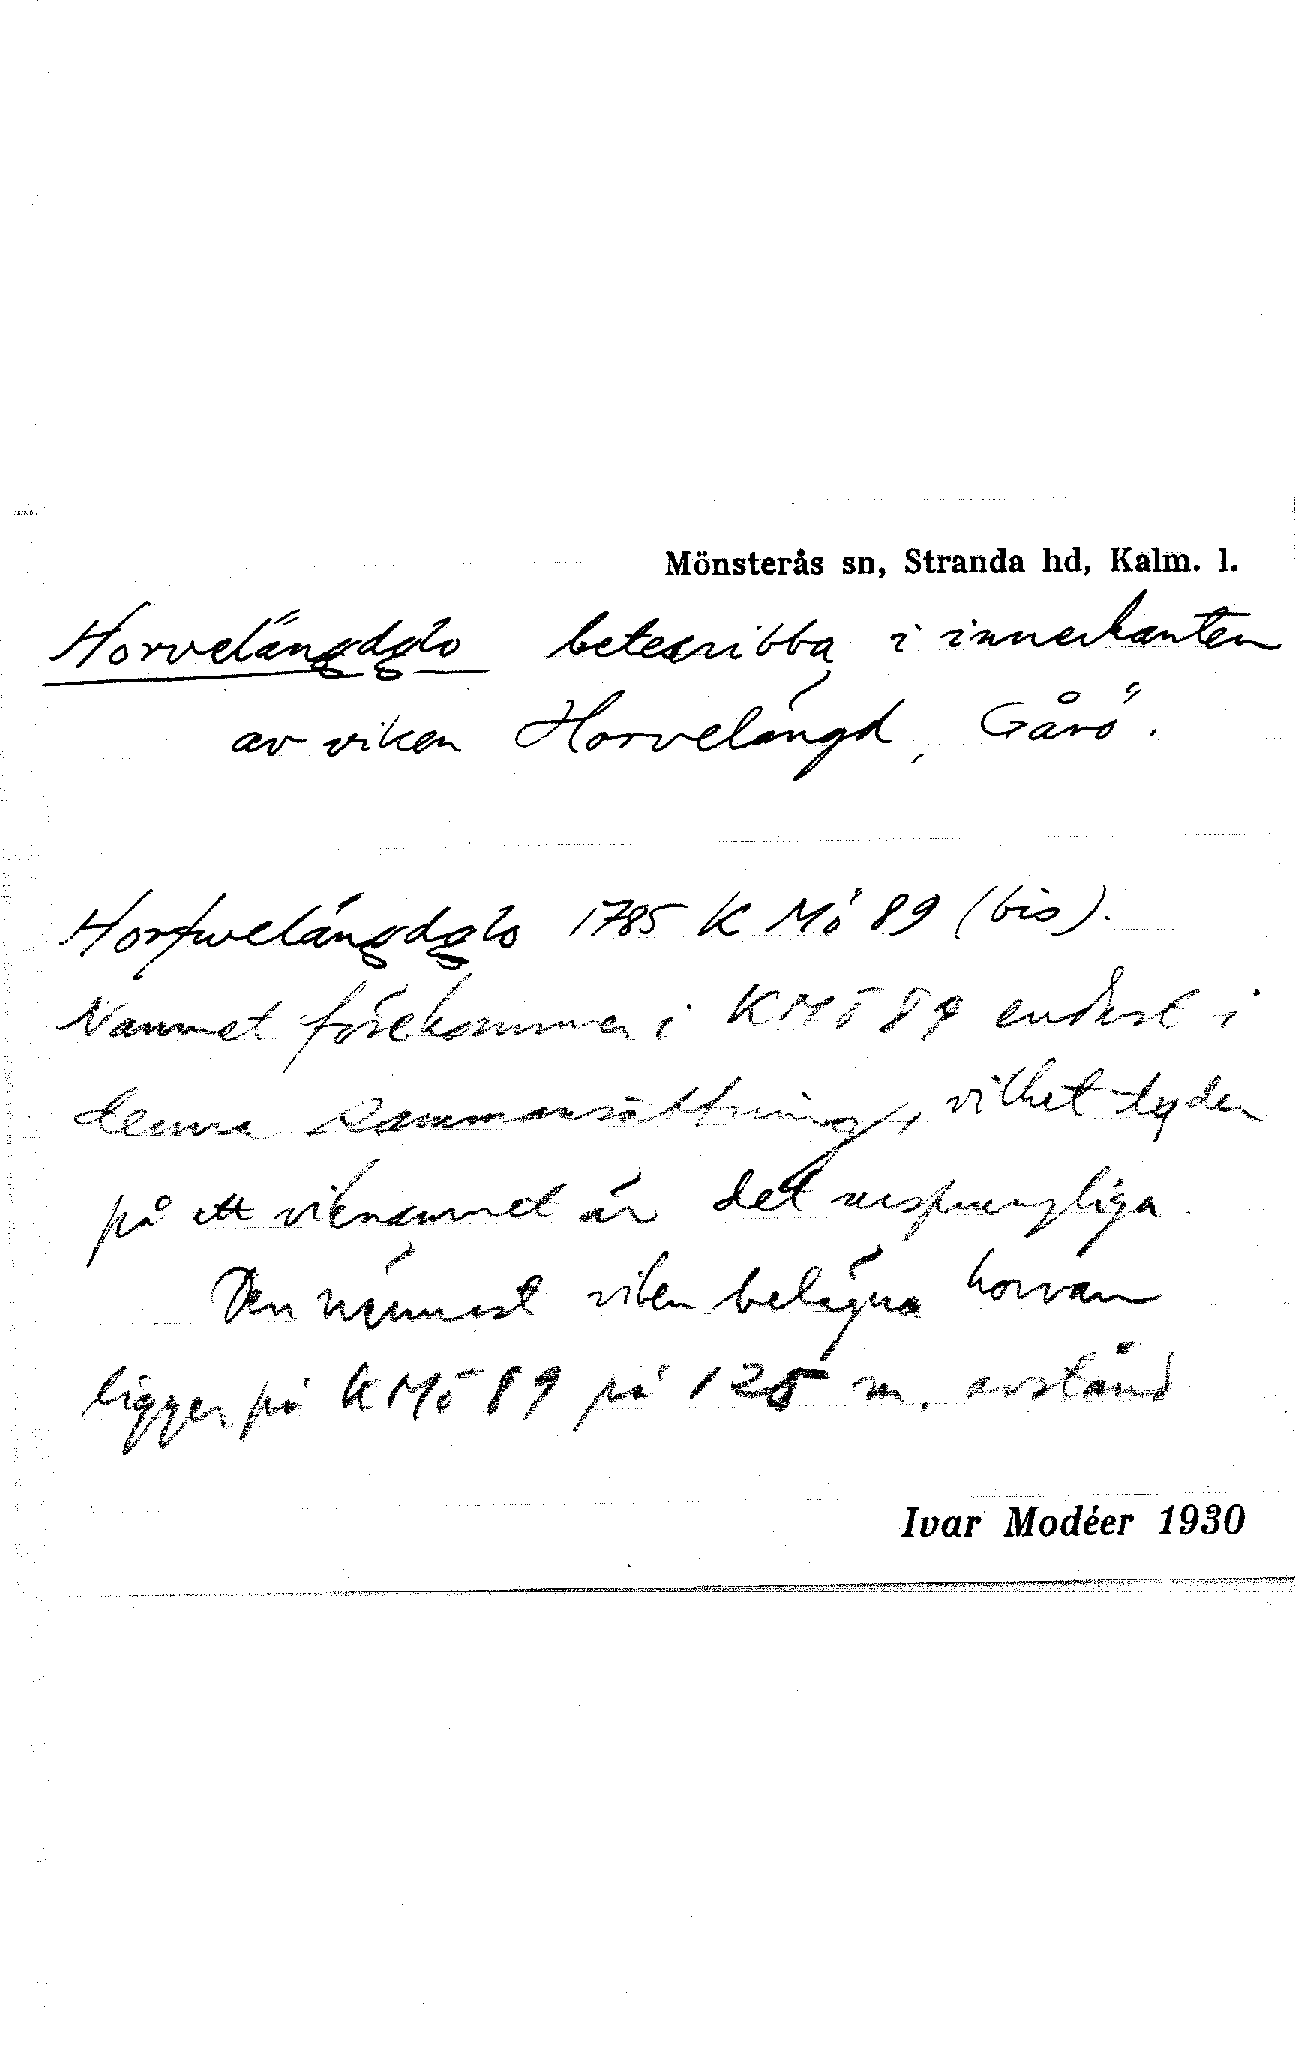 Mönsterås sn, Stranda hd, Kalm. l.
Horvelängdglo betesribba i innerkanten
av viken Horvelängd, Gårö.
Horfwelängdglo 1785 K Mö 89 (bis).
Namnet förekommer i KMö 89 endast i
denna sammansättning, vilket tyder
på att viknamnet är det ursprungliga
Den närmast viken belägna horvan
ligger på KMö 89 på 125 m. avstånd
Ivar Modéer 1930